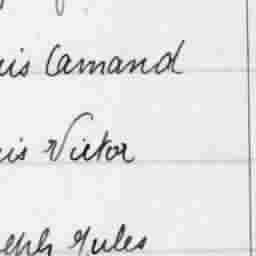 uis Camand
is Victor
seph Jules